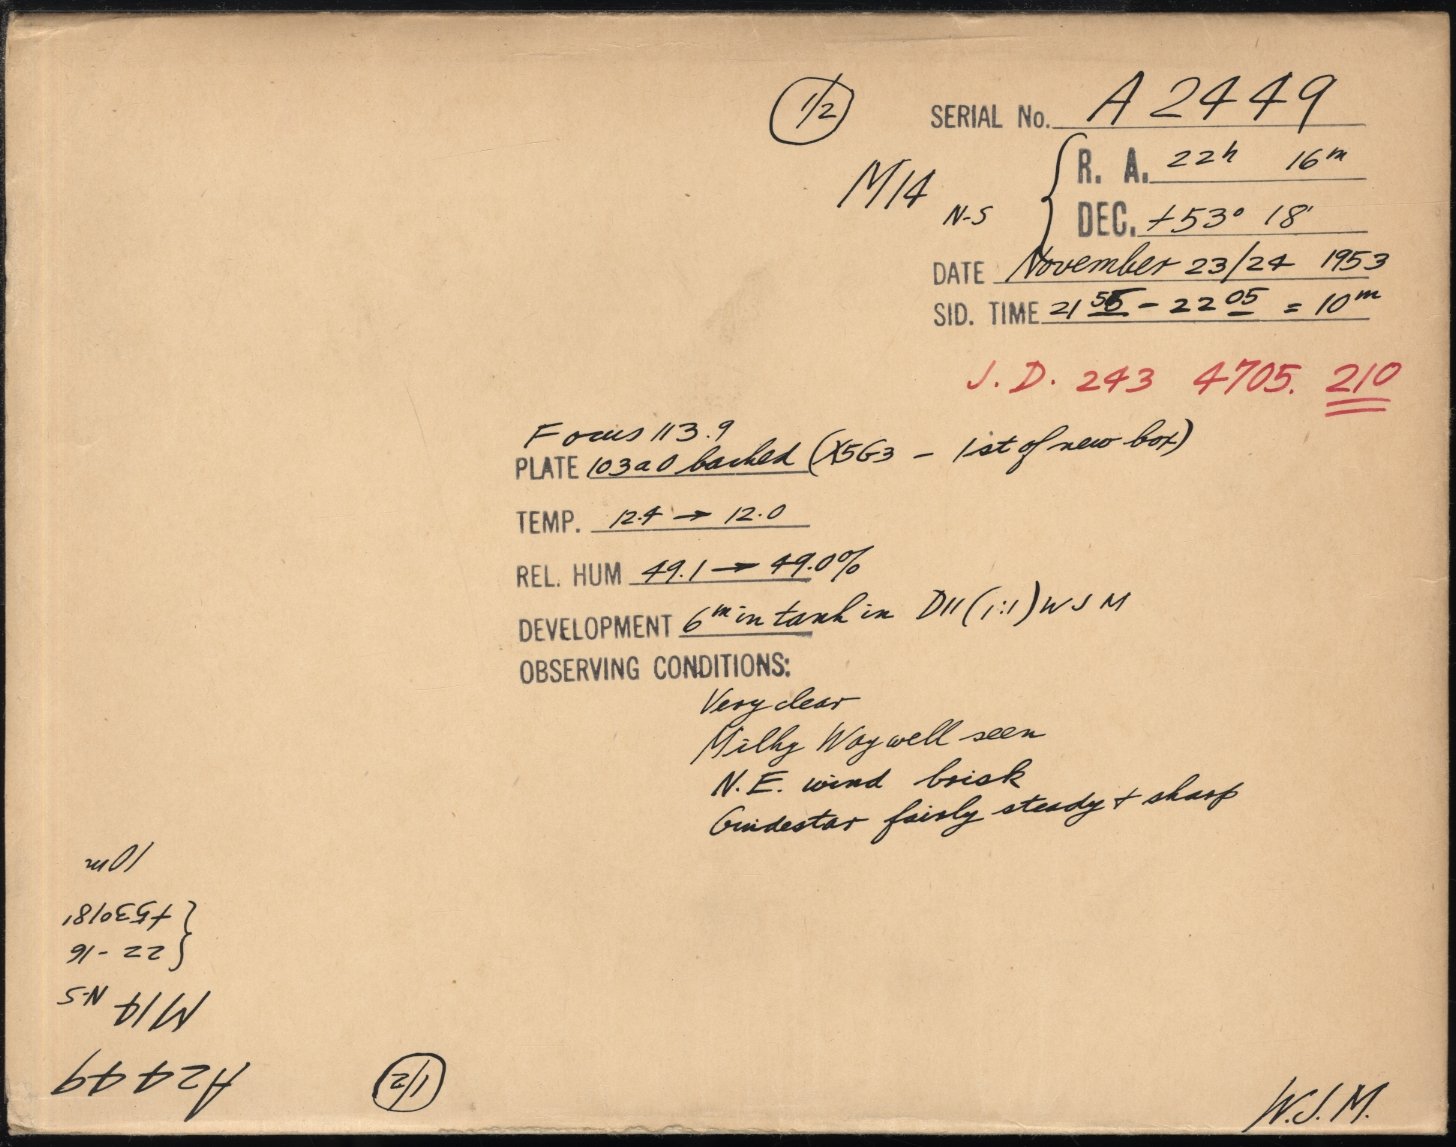 1/2
SERIAL No. A 2449
R. A. 22h 16m
M14 N-S
DEC. +53° 18'
DATE November 23/24 1953
SID. TIME 21 55 - 22 05 = 10m
J. D. 243 4705. 210
Focus 113.9
PLATE 103a0 backed (X5G3 - 1st of new box)
TEMP. 12.4 → 12.0
REL. HUM 49.1 → 49.0%
DEVELOPMENT 6m in tank in D11 (1:1) WJM
OBSERVING CONDITIONS:
Very clear
Milky Way well seen
N.E. wind brisk
Guidestar fairly steady + sharp
A2449
M14 N-S
22 - 16
+53°18'
10m
1/2
W.J.M.